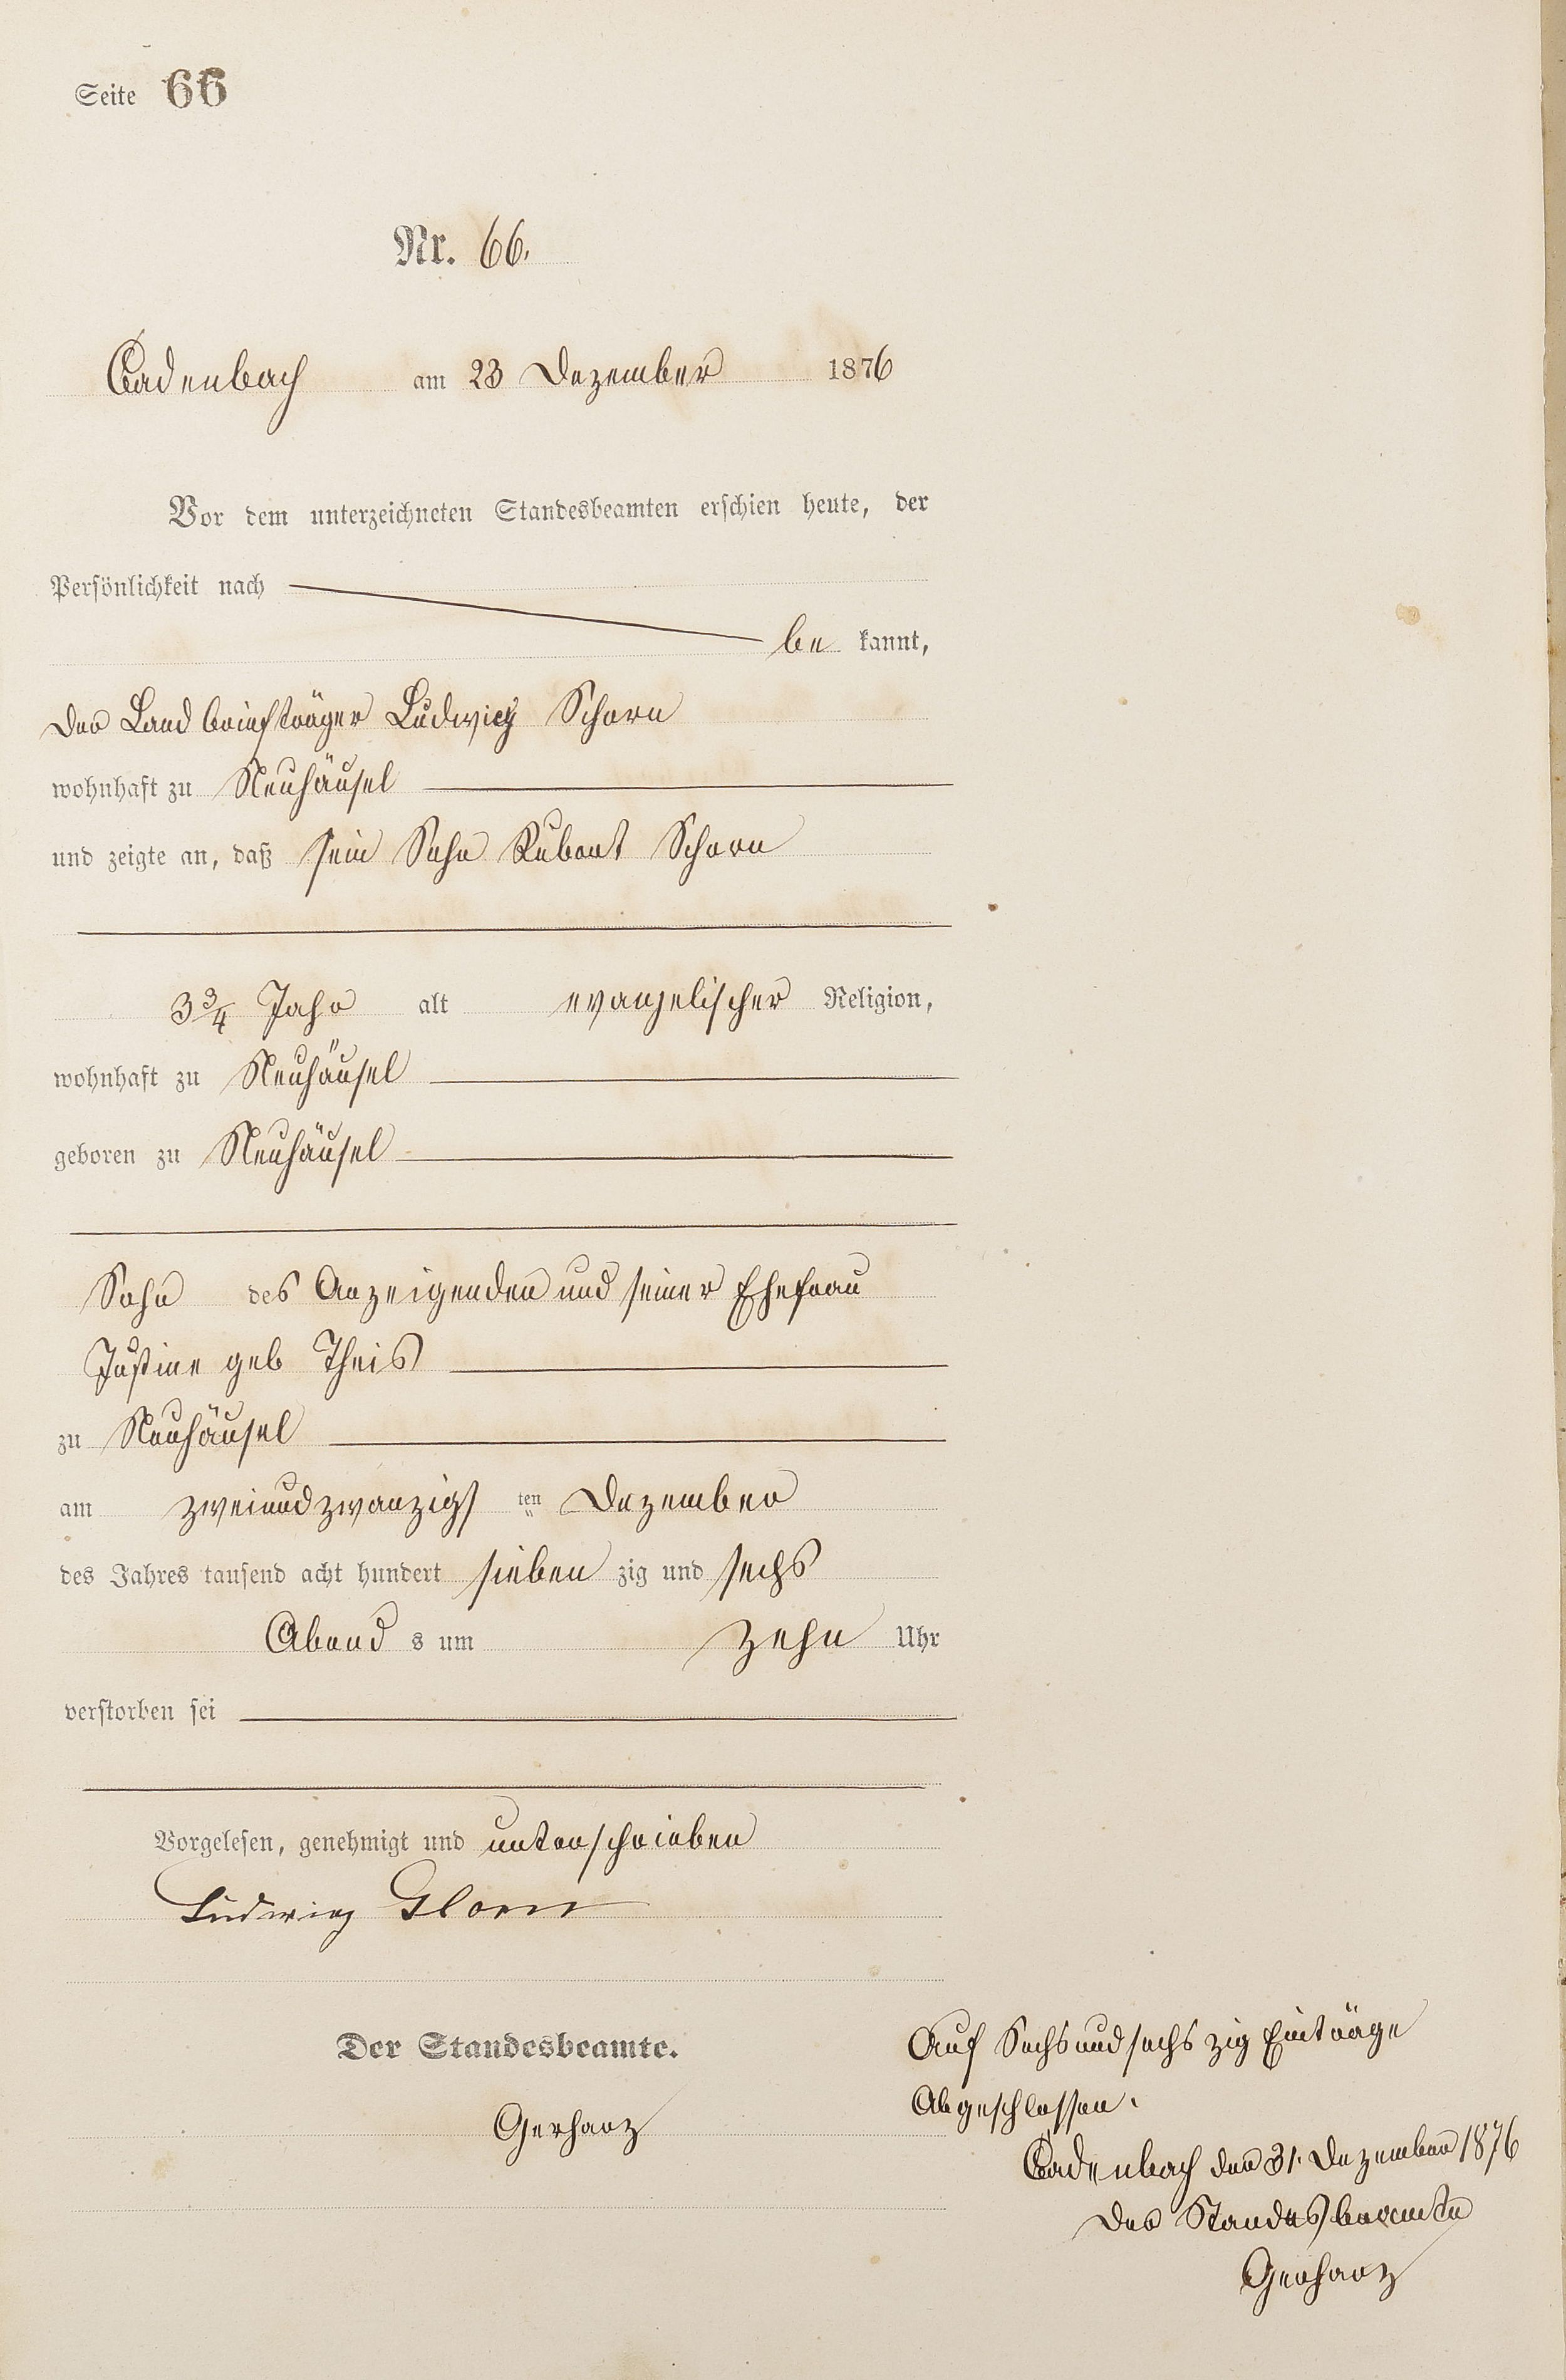 Seite 66
Nr. 66.
Cadenbach am 23 Dezember 1876
Vor dem unterzeichneten Standesbeamten erschien heute, der
Persönlichkeit nach
be kannt,
der Landbriefträger Ludwig Schorn
wohnhaft zu Neuhäusel
und zeigte an, daß sein Sohn Rubert Schorn
3 3/4 Jahr alt evangelischer Religion,
wohnhaft zu Neuhäusel
geboren zu Neuhäusel
Sohn des Anzeigenden und seiner Ehefrau
Justine geb Theis
zu Neuhäusel
am zweiundzwanzigs ten Dezember
des Jahres tausend acht hundert sieben zig und sechs
Abend s um zehn Uhr
verstorben sei
Vorgelesen, genehmigt und unterschrieben
Ludwig
Der Standesbeamte.
Gerharz
Auf Sechsundsechszig Einträge
Abgeschlossen.
Cadenbach den 31. Dezember 1876
Der Standesbeamte
Gerharz